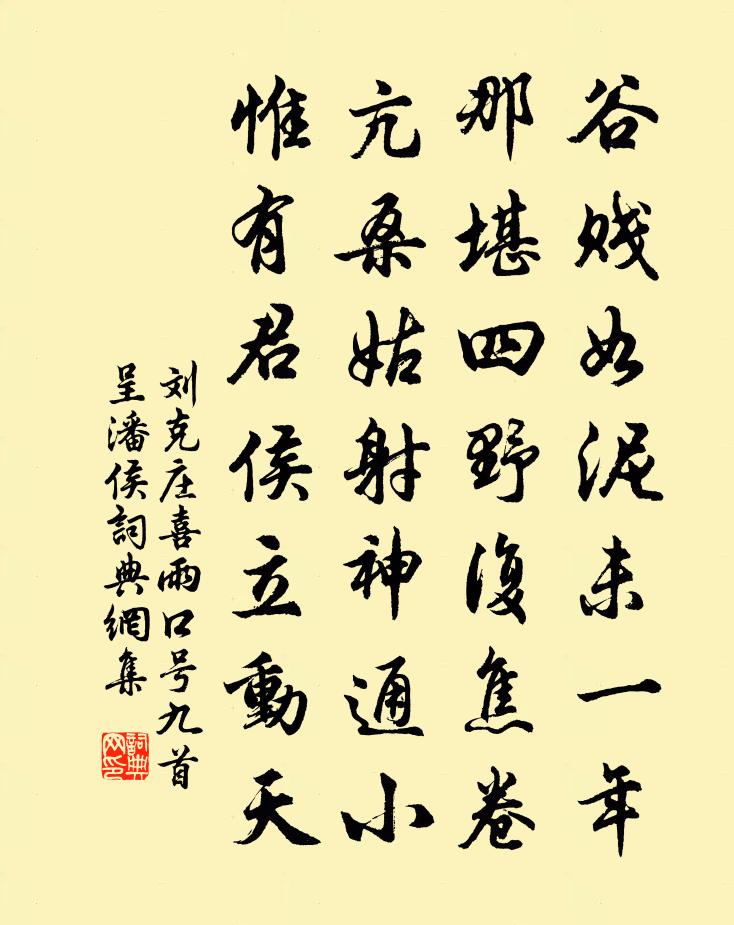 谷贱如泥未一年
那堪四野復焦卷
亢桑姑射神通小
惟有君侯立動天
刘克庄喜雨口号九首
呈潘侯詞典網集
詞典网印